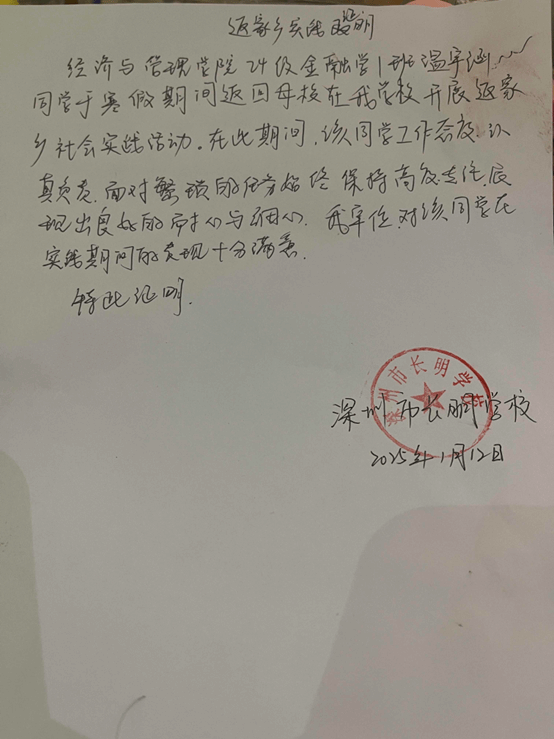 返家乡实践证明
经济与管理学院24级金融学1班温宇涵
同学于寒假期间返回母校在我学校开展返家
乡社会实践活动。在此期间,该同学工作态度认
真负责,面对繁琐的任务始终保持高度责任,展
现出良好的耐心与细心,我单位对该同学在
实践期间的表现十分满意.
特此证明.
深圳市长明学校
深圳市长明学校
2025年1月12日